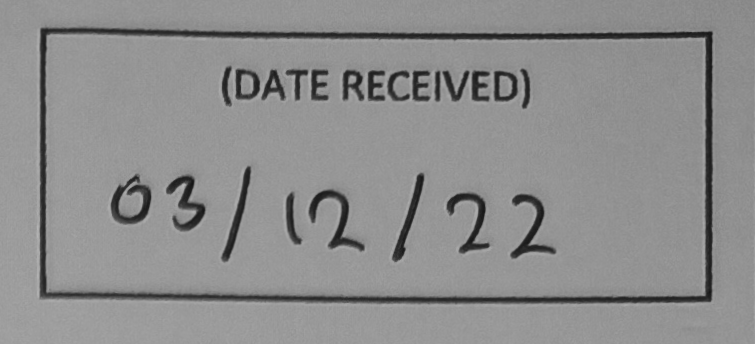 (DATE RECEIVED)
03/12/22